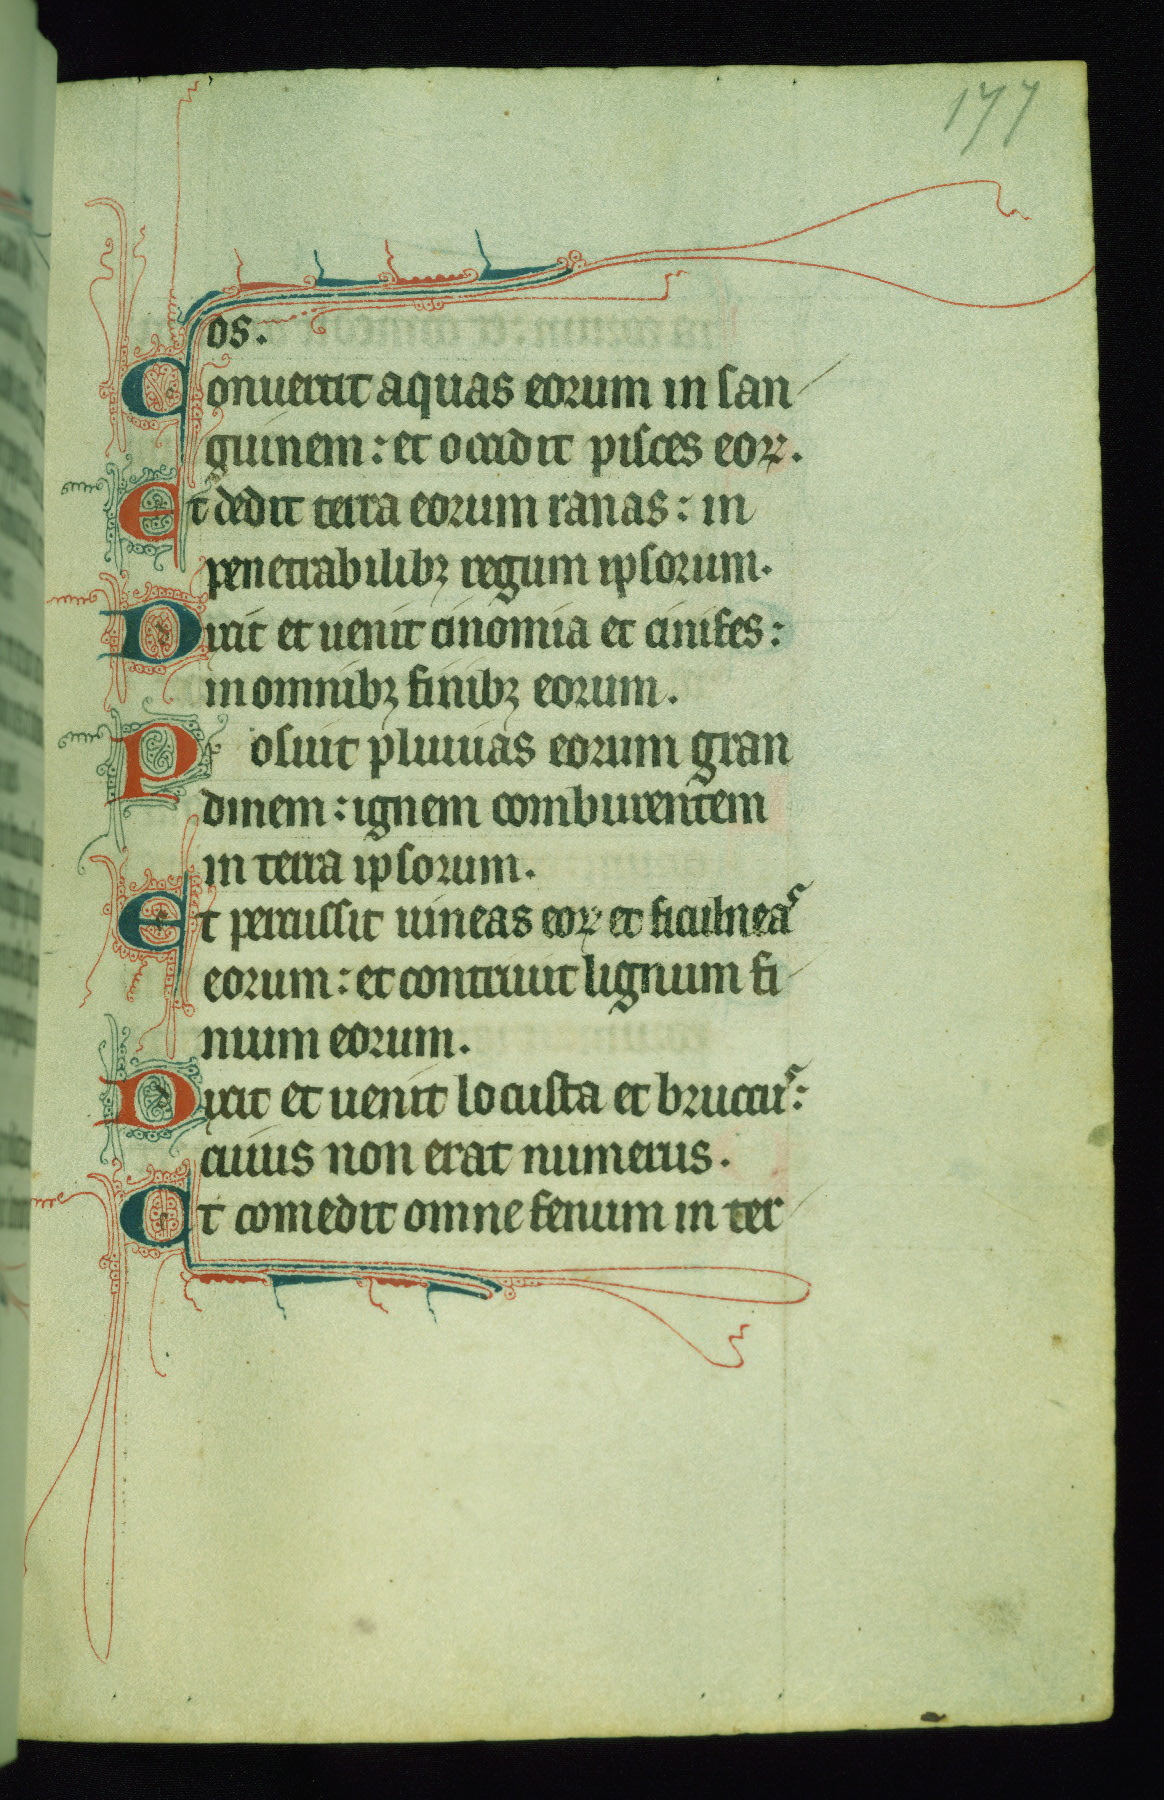 177
os.
Conuertit aquas eorum in san
guinem: et occidit pisces eoꝝ.
Et dedit terra eorum ranas: in
penetrabilibꝫ regum ipsorum.
Dixit et uenit cinomia et cinifes:
in omnibꝫ finibꝫ eorum.
Posuit pluuias eorum gran
dinem: ignem comburentem
in terra ipsorum.
Et percussit uineas eoꝝ et ficulneas
eorum: et contriuit lignum fi
nium eorum.
Dixit et uenit locusta et bruccus:
cuius non erat numerus.
Et comedit omne fenum in ter